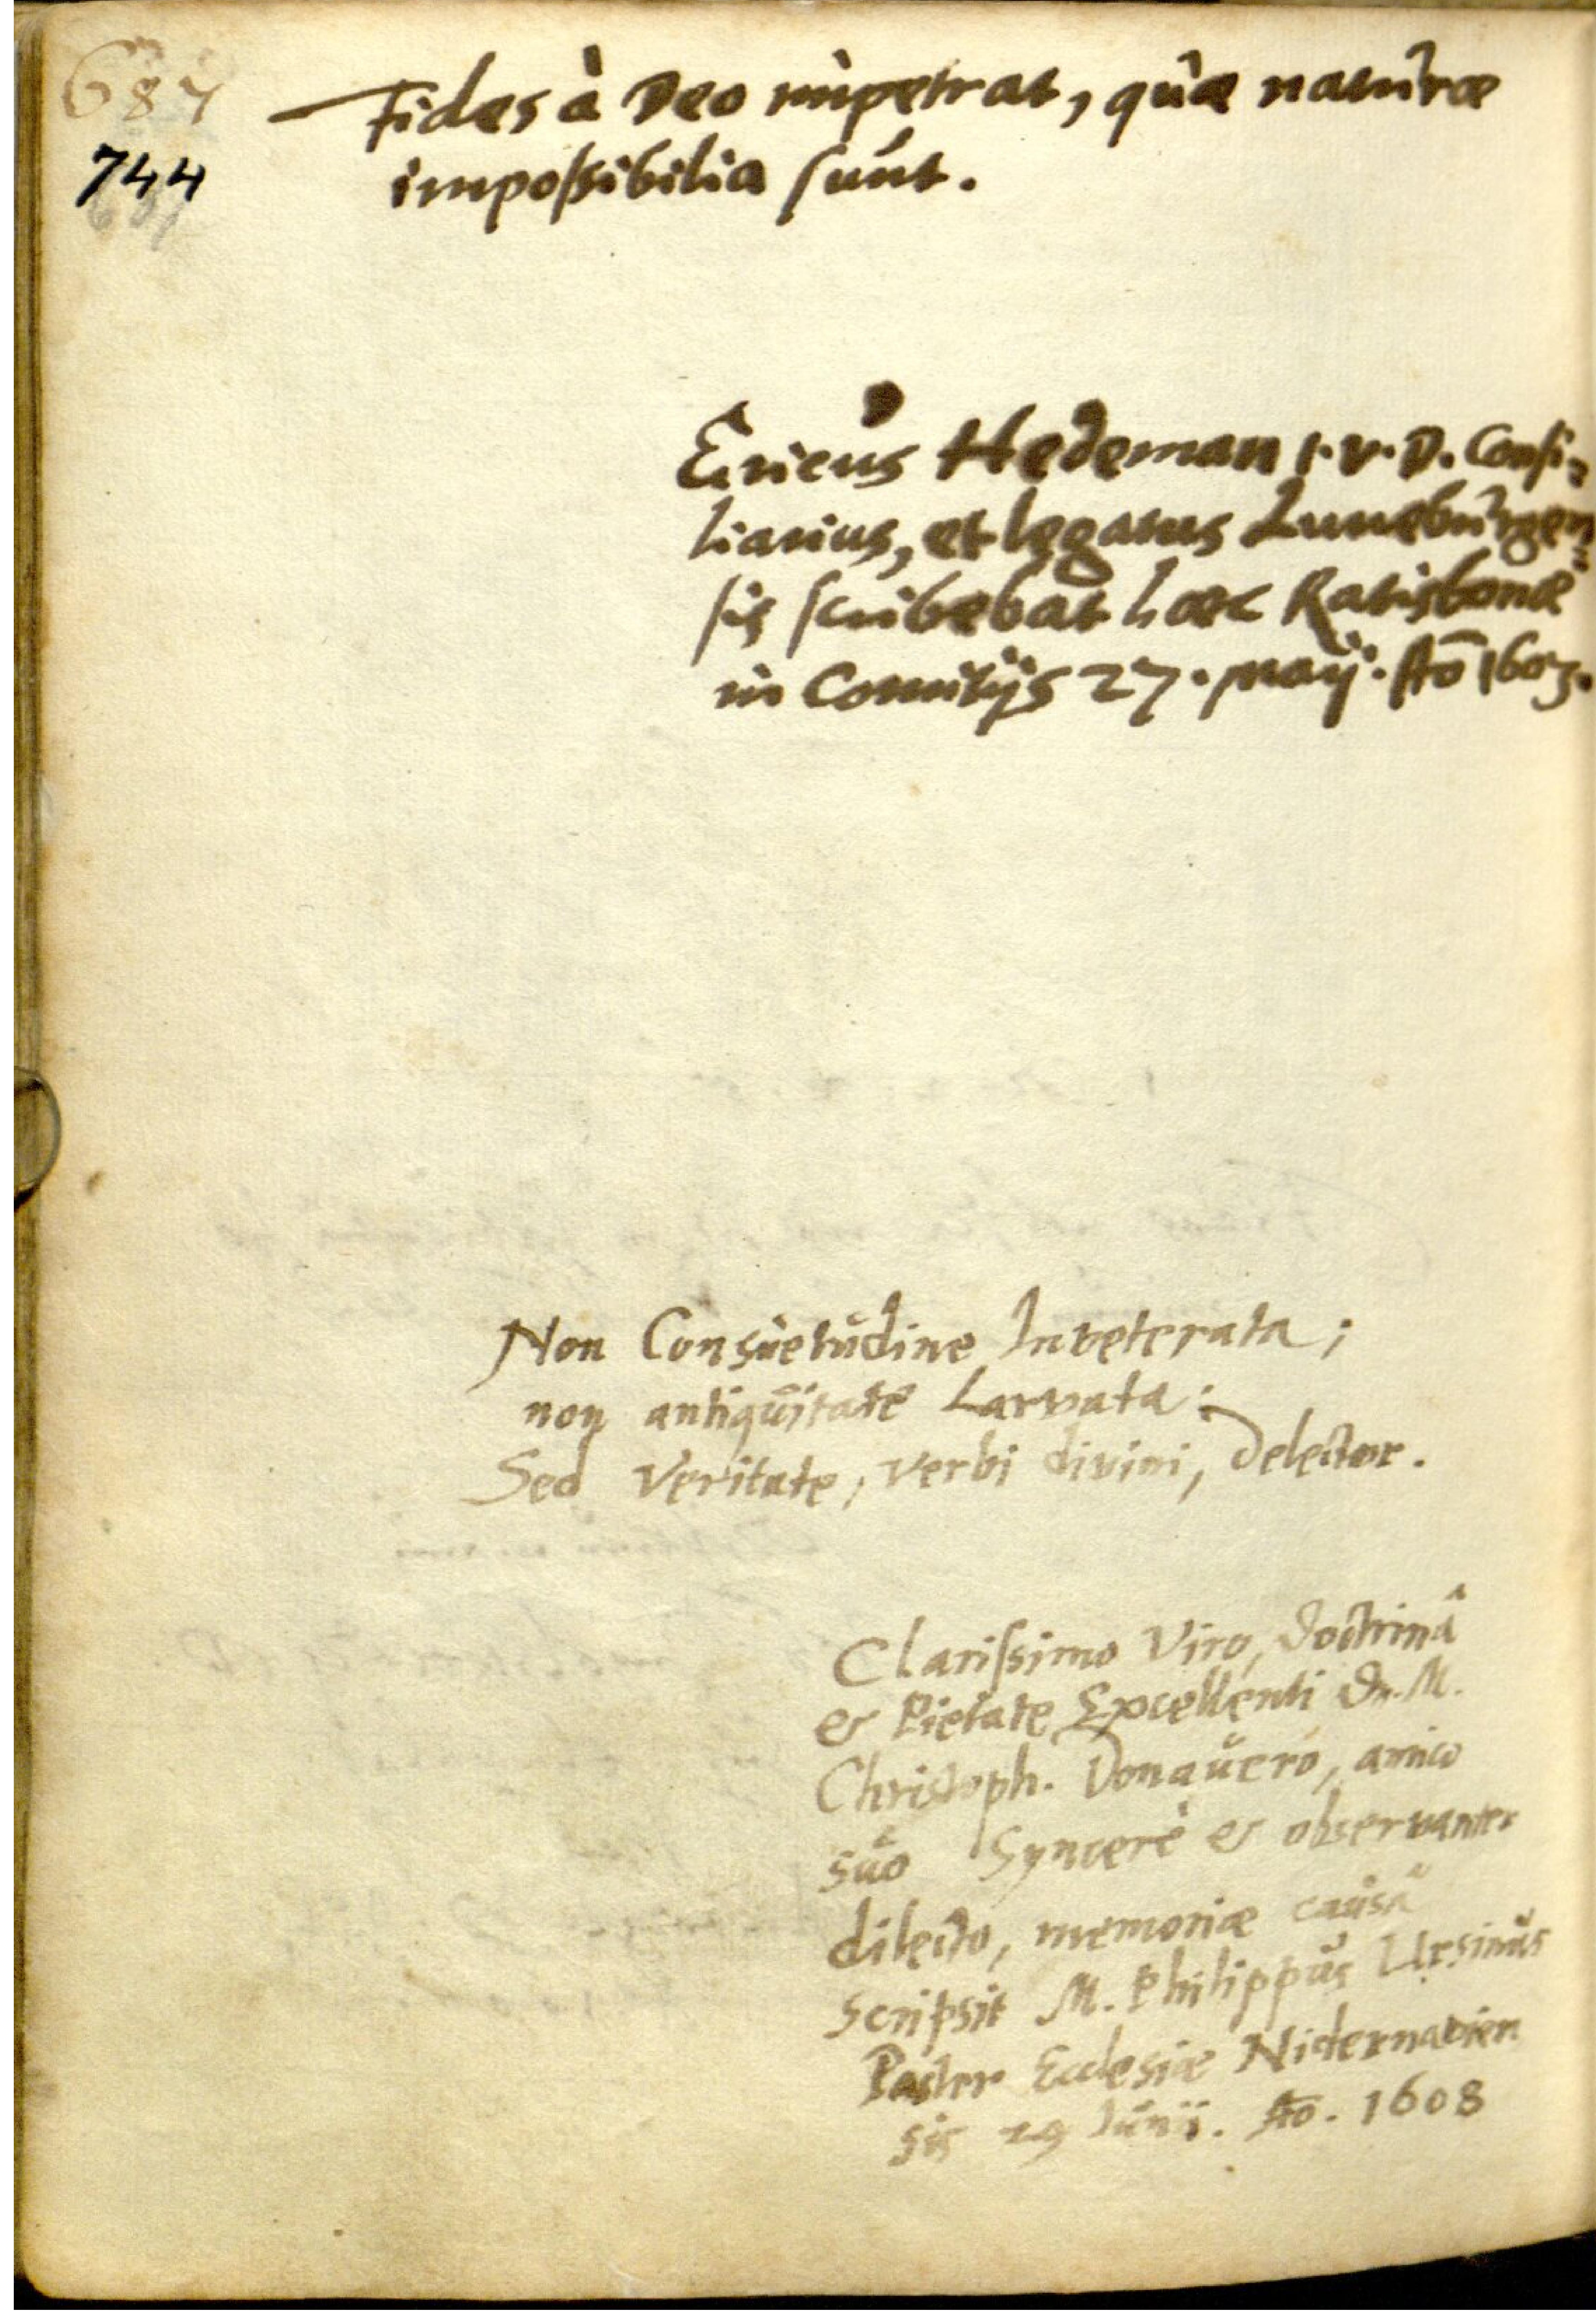 687
744
Fides à Deo impetrat, quæ naturæ
impossibilia sunt.
Ericus Hedeman I. V. D. Consi-
liarius, et legatus Luneburgen-
sis scribebat hæc Ratisbonæ
in Comitijs 27. Maij. Ao 1603.
Non Consuetudine Inveterata;
non antiquitate Larvata;
Sed Veritate, verbi divini, delector.
Clarissimo Viro, doctrinâ
& Pietate Excellenti Dn. M.
Christoph. Donauero, amico
suo Syncerè & observanter
dilecto, memoriæ causâ
scripsit M. Philippus Ursinus
Pastor Ecclesiæ Nidernavien
sis 29 Iunii. Ao. 1608